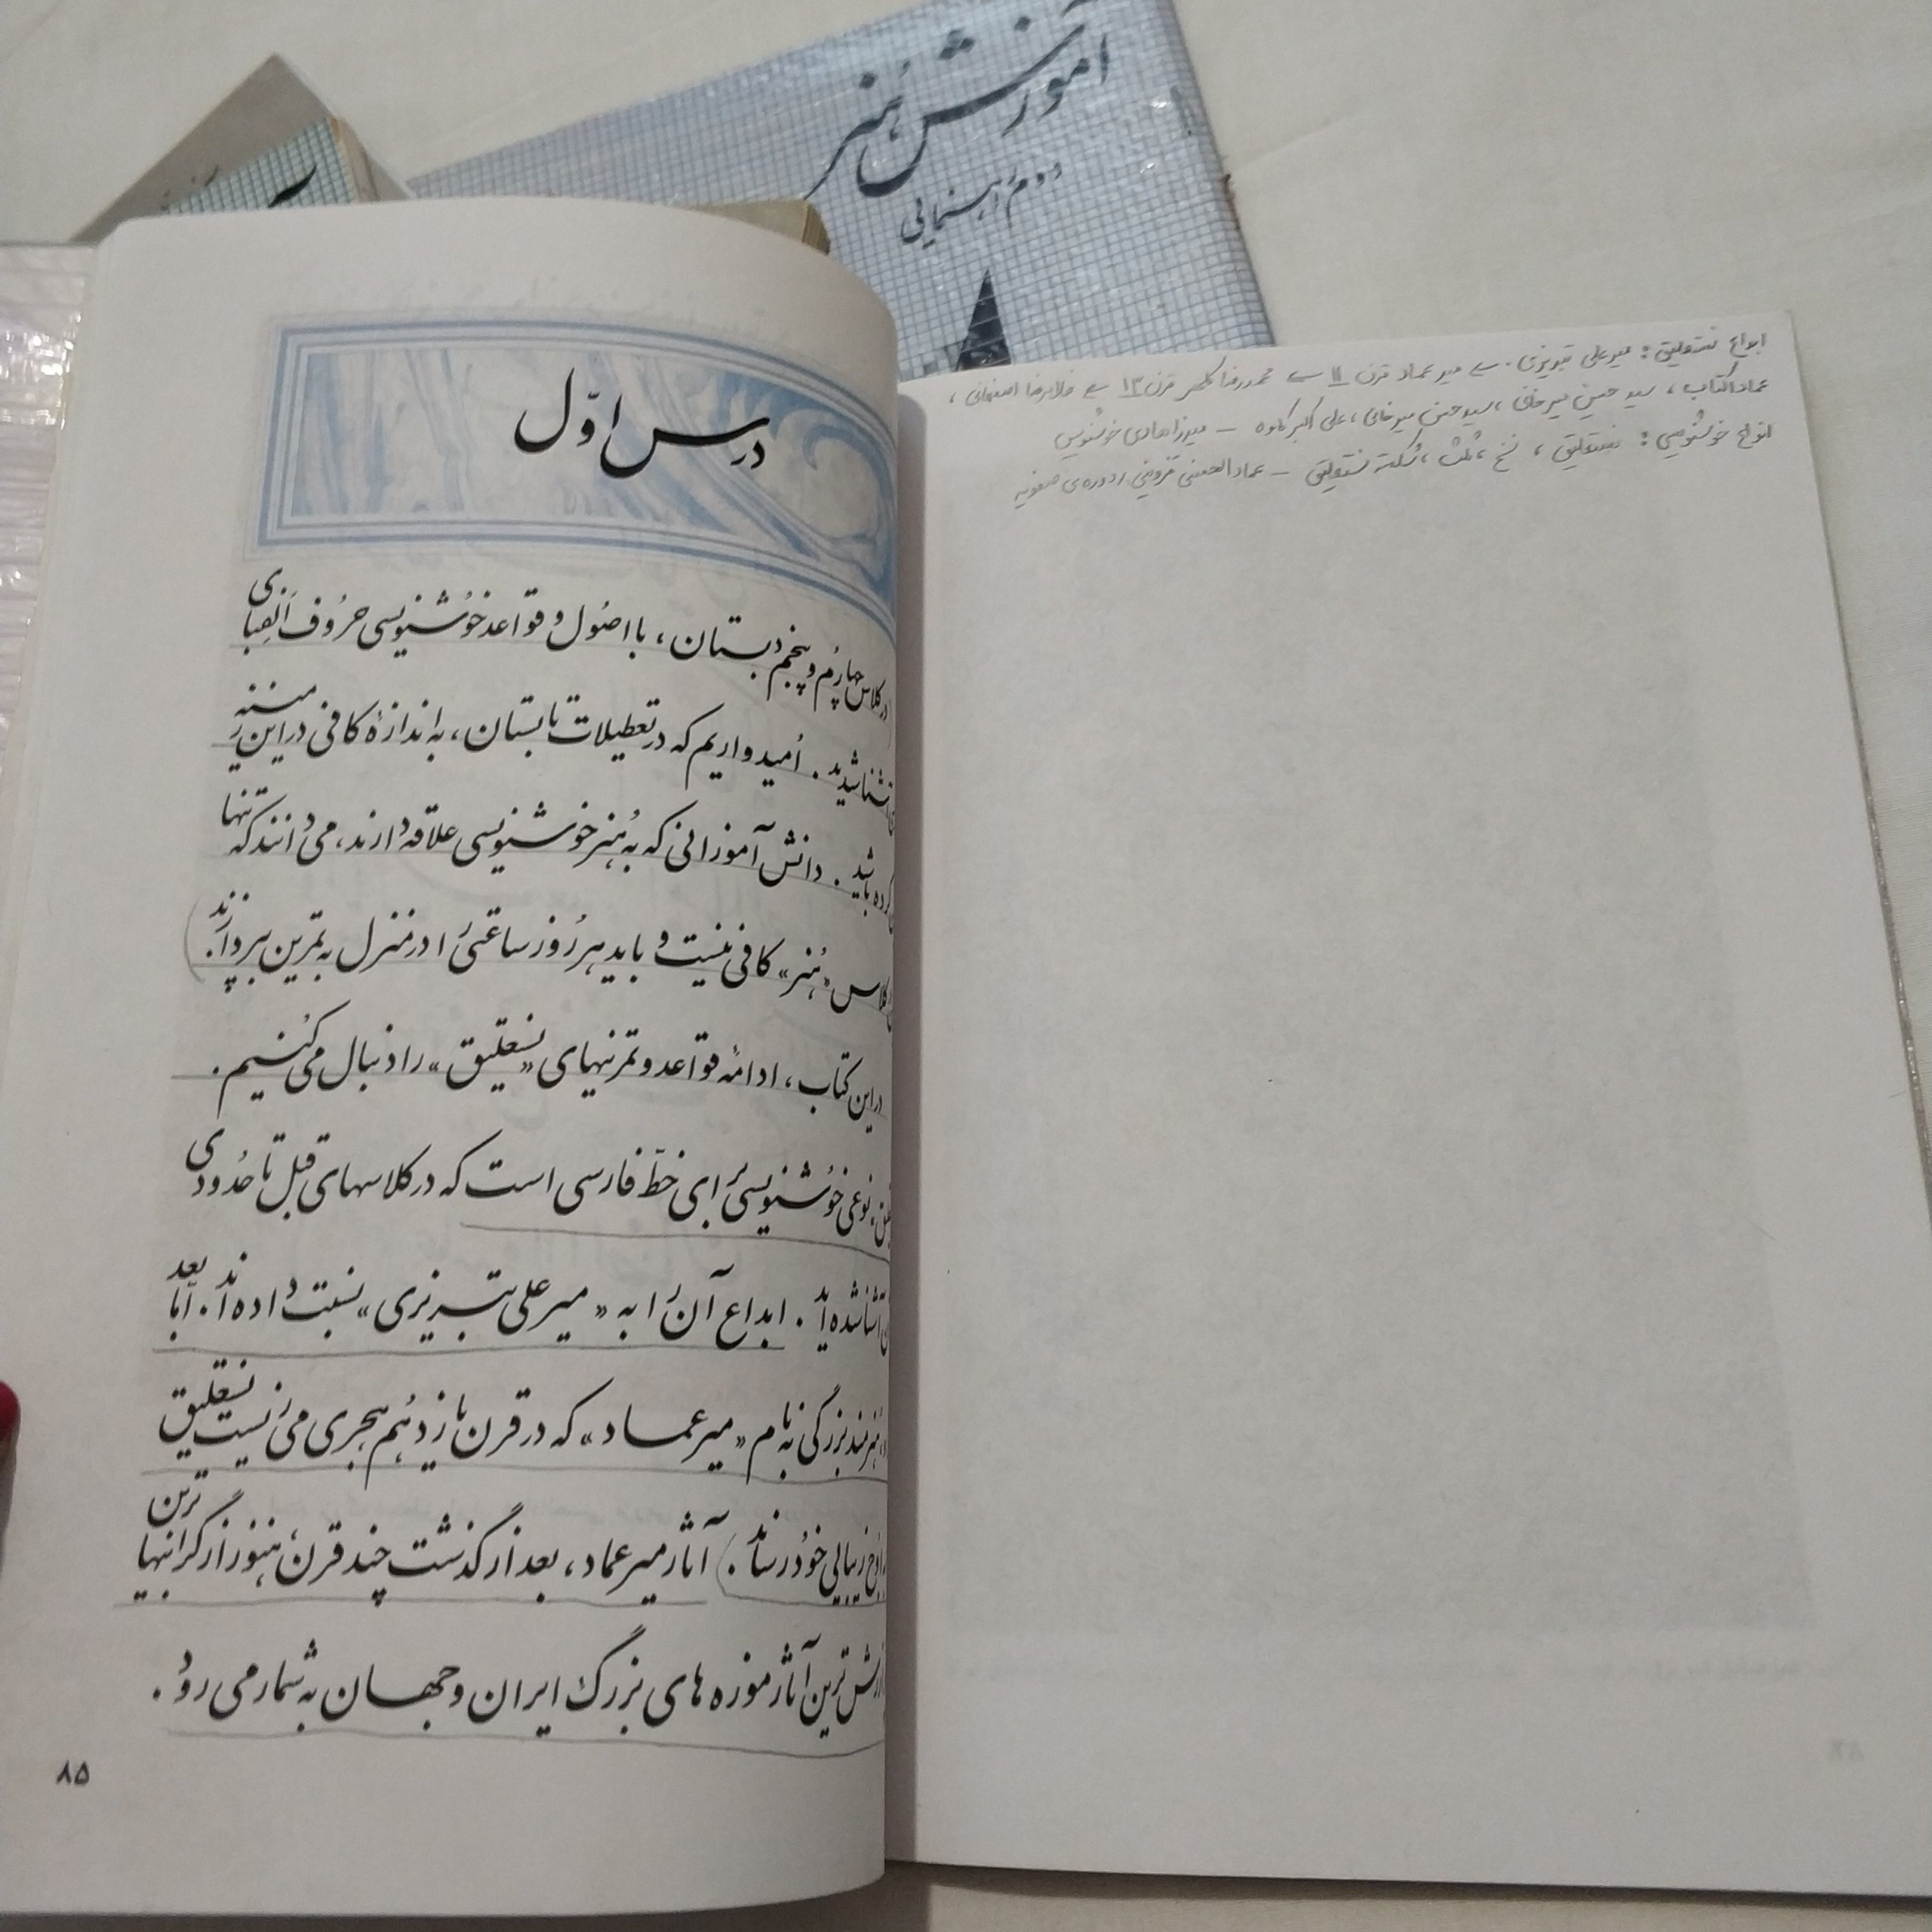 آموزش هنر
دوم راهنمایی
انواع نستعلیق: میرعلی تبریزی. میر عماد قرن ۱۱ محمدرضا کلهر قرن ۱۳ غلامرضا اصفهانی،
عمادالکتاب، سید حسین میرخانی، سید حسن میرخانی، علی اکبر کاوه – میرزا هادی خوشنویس
انواع خوشنویسی: نستعلیق، نسخ، ثلث، شکسته نستعلیق – عمادالحسنی قزوینی دوره‌ی صفویه
درس اوّل
در کلاس چهارم و پنجم دبستان، با اصُول و قواعد خوُشنویسی حرُوف اَلِفبای
آشنا شدید. اُمیدواریم که در تعطیلات تابستان، به اندازهٔ کافی در این زمینه
کرده باشید. دانش آموزانی که به هُنر خوشنویسی علاقه دارند، می دانند که تنها
کلاس «هُنر» کافی نیست و باید هر رُوز ساعتی را در منزل به تمرین بپردازند.
در این کتاب، ادامهٔ قواعد و تمرینهای «نستعلیق» را دنبال می کُنیم.
نوعی خوُشنویسی برای خطّ فارسی است که در کلاسهای قبل تا حُدودی
آشنا شده اید. ابداع آن را به «میر علی تبریزی» نسبت داده اند. امّا بعد
هنرمند بزرگی به نام «میر عماد» که در قرن یازدهُم هجری می زیست نستعلیق
اوج زیبایی خود رساند. آثار میر عماد، بعد از گذشت چند قرن، هنوز از گرانبهاترین
ارزش ترین آثار موزه های بزرگ ایران و جهان به شمار می رود.
۸۵